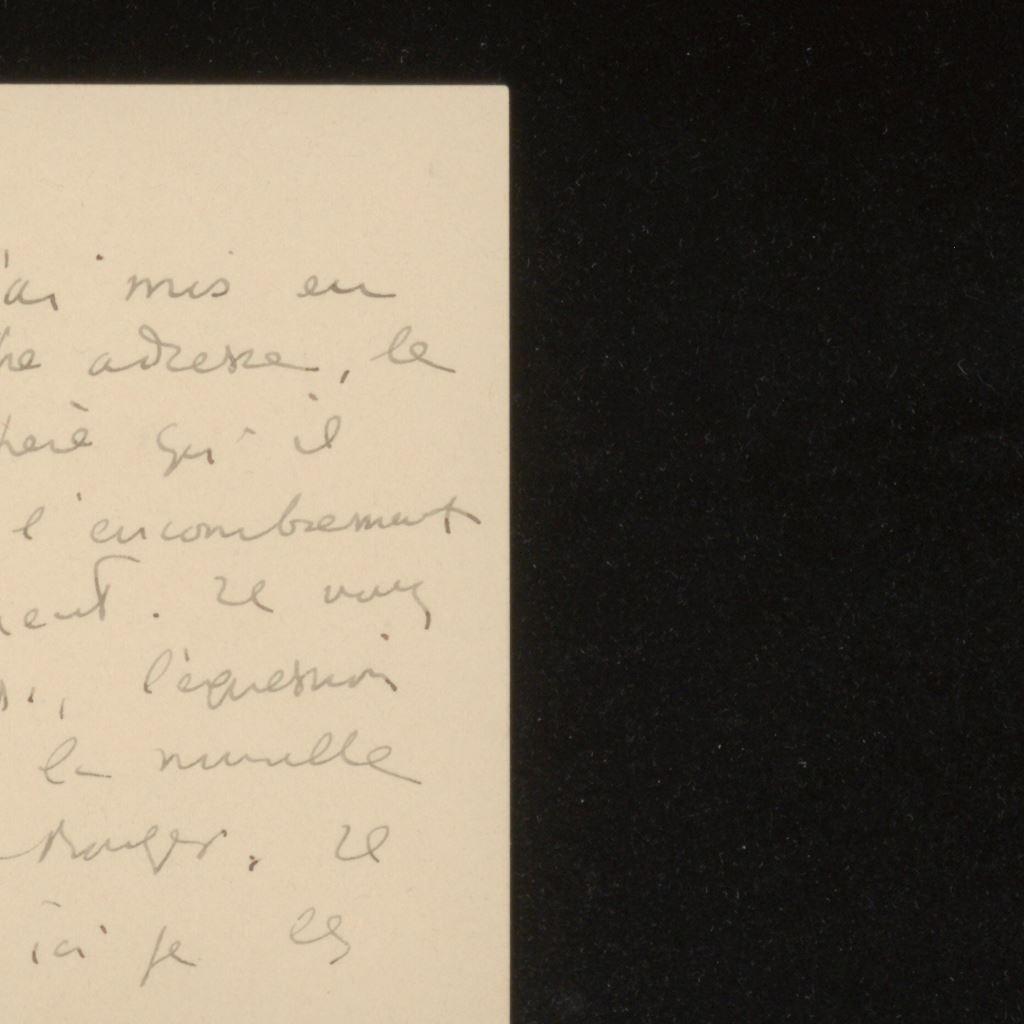 'ai mis en
adresse, le
qu'il
l'encombrement
ment. Je vous
l'expression
la nouvelle
étranger. Je
ici je les